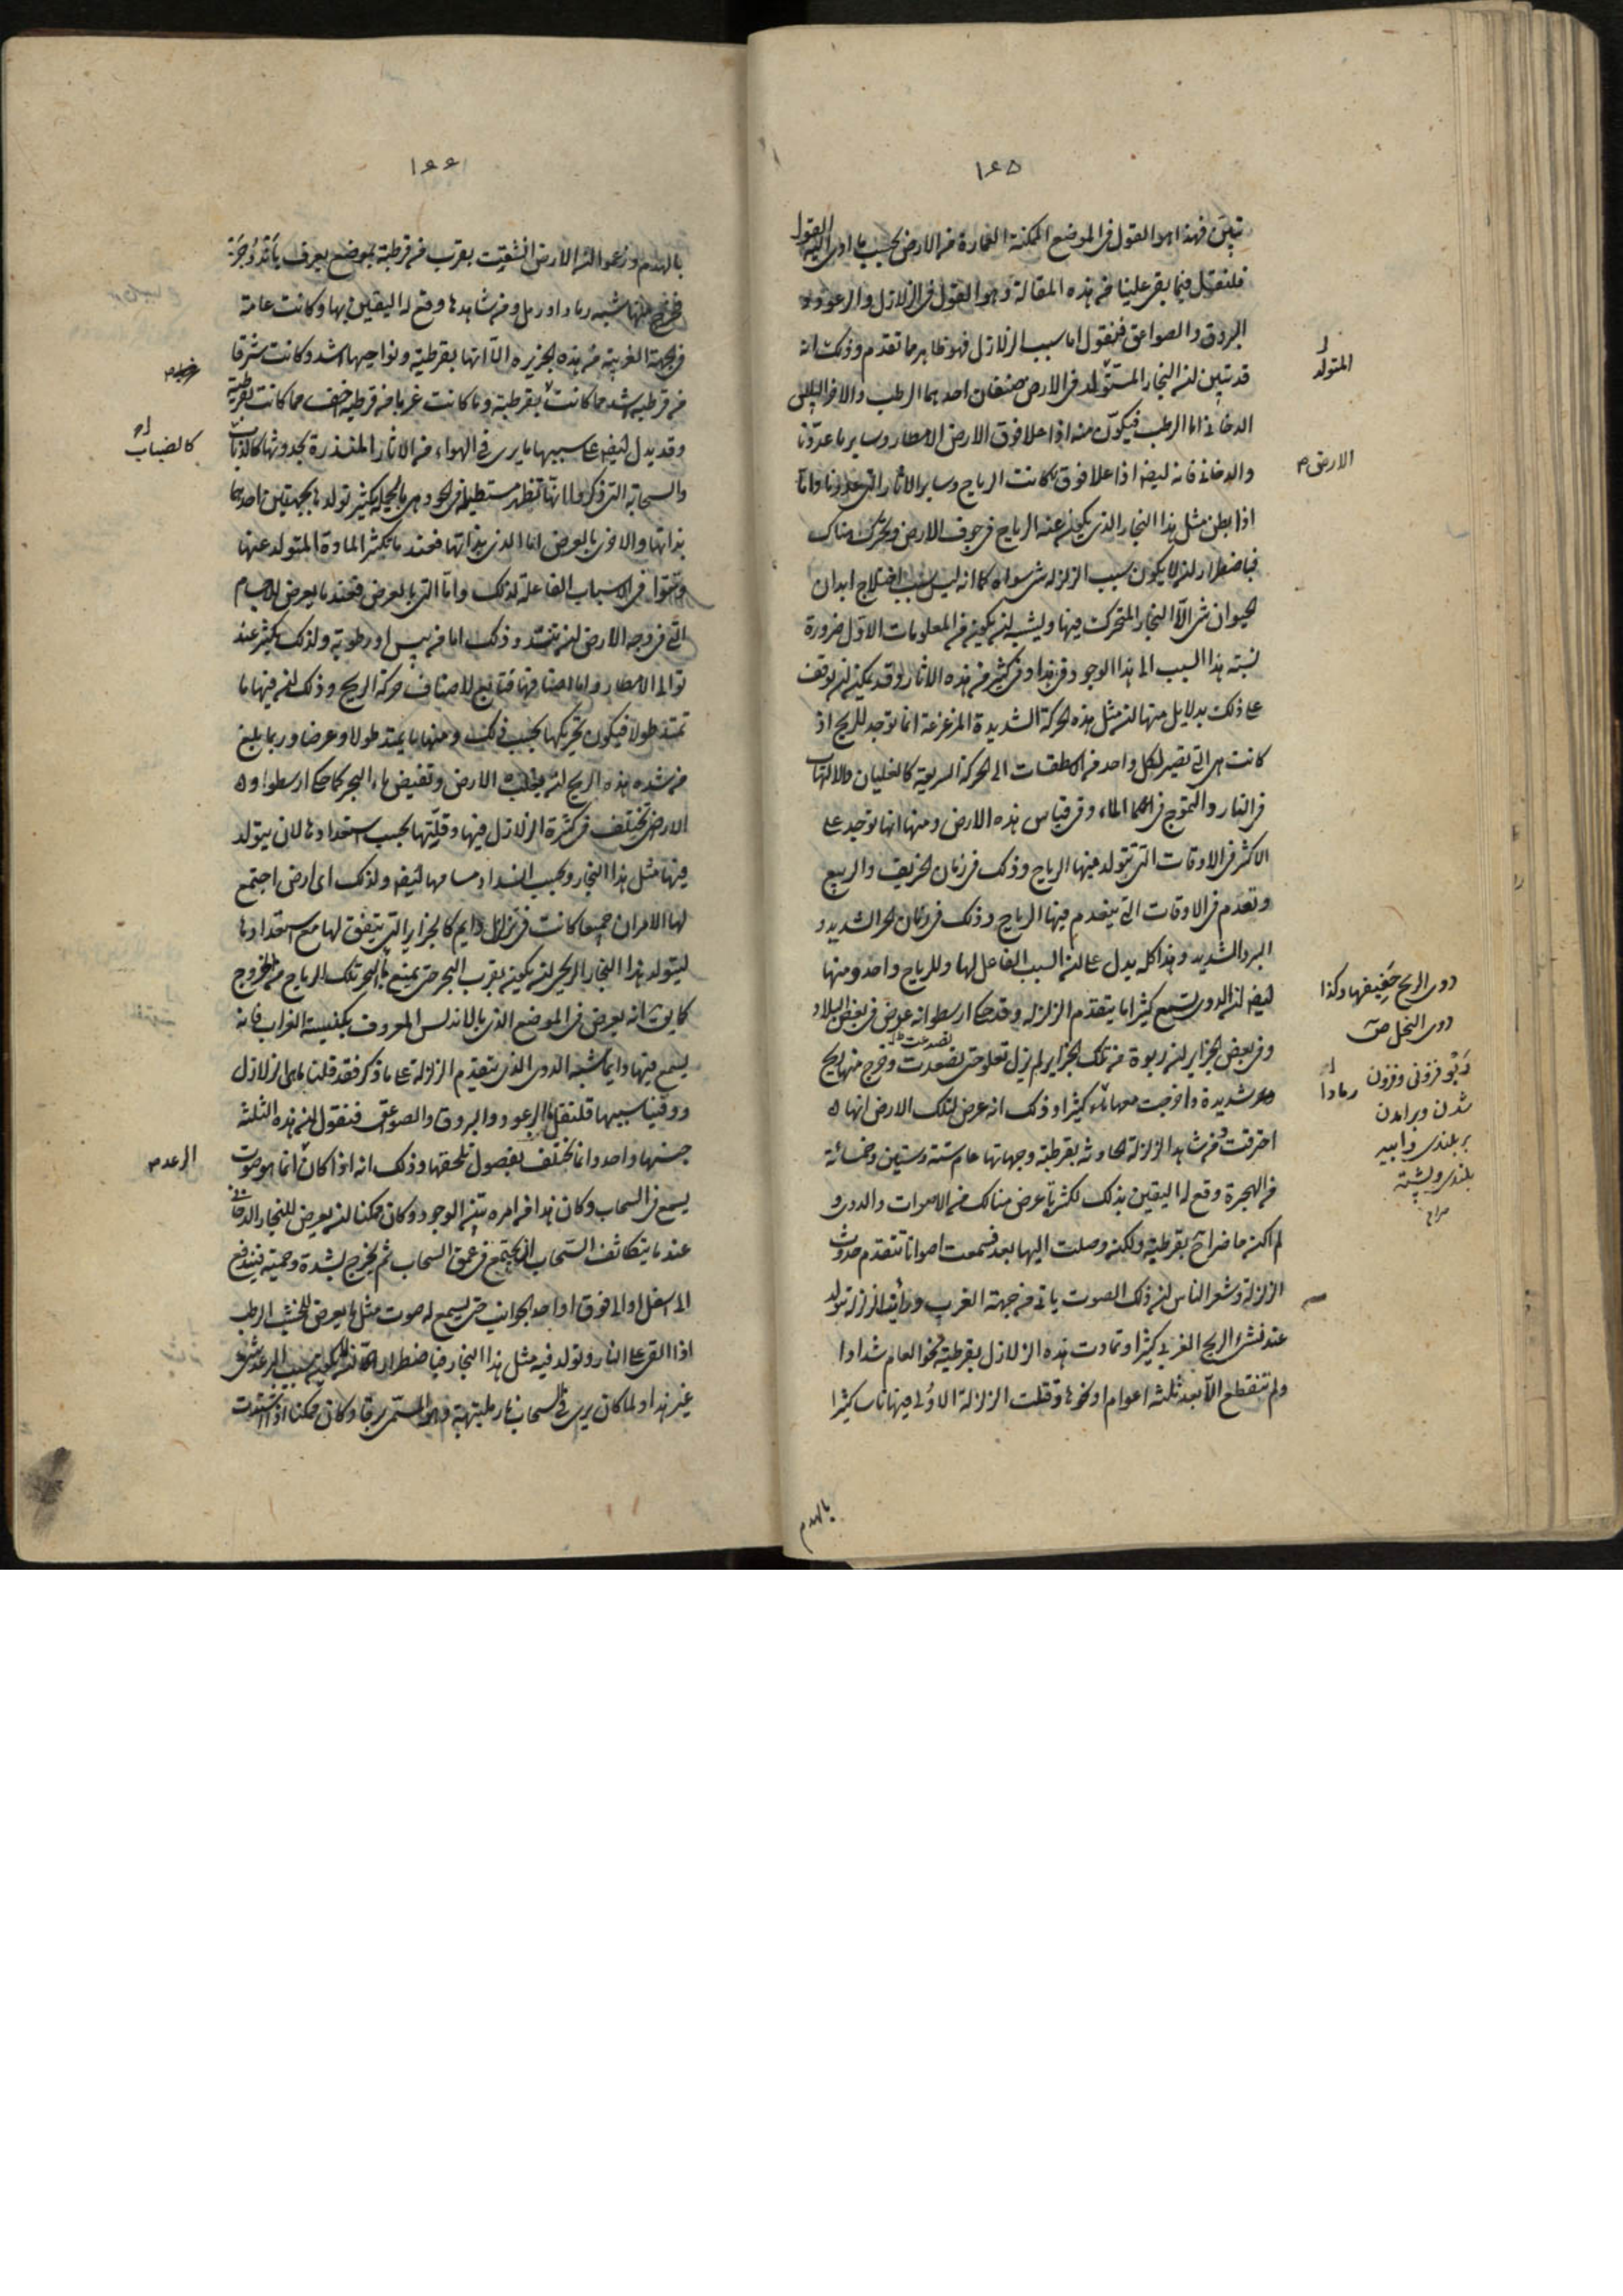 ١٦٥
تبين فهذا هو القول فى الموضع الممكنة العمارة من الارض بحسب ما ادى اليه القول
فلنقل فيما بقى علينا من هذه المقالة وهو القول فى الزلازل والرعود و
البروق والصواعق فنقول اما سبب الزلازل فهو ظاهر مما تقدم وذلك انه
قد تبين ان البخار المتولد فى الارض صنفان احدهما الرطب والاخر
الدخانى اما الرطب فيكون منه اذا علا فوق الارض الامطار وساير ما عددنا
والدخانى فانه ايضا اذا علا فوق كانت الرياح وساير الاثار التى عددنا واما
اذا بطن مثل هذا البخار الذى يكون عنه الرياح فى جوف الارض وتحرك هناك
فباضطرار ان لا يكون سبب الزلزله شى سواه كما انه ليس سبب اختلاج ابدان
الحيوان شى الا البخار المتحرك فيها ويشبه ان يكون من المعلومات الاول ضرورة
نسبة هذا السبب الى هذا الوجود فى هذا وفى كثير من هذه الاثار وقد يمكن ان نوقف
على ذلك بدلايل منها ان مثل هذه الحركة الشديدة المزعزعة انما توجد للريح اذ
كانت هى التى تصير لكل واحد من الاسطقسات الى الحركة السريعة كالغليان والالتهاب
فى النار والتموج فى الماء وفى قياس هذه الارض ومنها انها توجد على
الاكثر فى الاوقات التى تتولد فيها الرياح وذلك فى زمان الخريف والربيع
وتعدم فى الاوقات التى ينعدم فيها الرياح وذلك فى زمان الحر الشديد و
البرد الشديد وهذا كله يدل على ان السبب الفاعل لها وللرياح واحد ومنها
ايضا ان الدوى تسمع كثيرا ما يتقدم الزلزله وقد حكى ارسطو انه عرض فى بعض البلاد
وفى بعض الجزاير ان ربوة من تلك الجزاير لم يزل تعلو حتى تصعدت وخرج منها ريح
شديدة واخرجت معها كثيرا وذلك انه عرض لتلك الارض انها
احترقت ومن شاهد الزلزلة الحادثه بقرطبة وجهاتها عام ستة وستين وخمسائة
من الهجرة وقع له اليقين بذلك لكثرة ما عرض هناك من الاصوات والدوى و
لم اكن حاضرا بقرطبة ولكن وصلت اليها بعد فسمعت اصواتا تتقدم حدوث
الزلزلة وشعر الناس ان ذلك الصوت ياتى من جهة الغرب ورايت الزلزلة تتولد
عند نشئ الريح الغربى كثيرا وتمادت هذه الزلازل بقرطبة نحو العام شدادا
ولم تنقطع الا بعد ثلثه اعوام او نحوها وقتلت الزلزلة الاولى فيها ناسا كثيرا
بالهدم
المتولد
الارض
دوى الريح حفيفها وكذا
دوى النحل ص
ربو فزونى وفزون
شدن وبر امدن
بر بلندى
بلندى وپشته
صراح
رمادا
تصدعت
١٦٦
بالهدم وزعموا ان الارض انشقت بقرب من قرطبة بموضع يعرف باندوجر
فخرج منها شبه رماد او رمل ومن شاهدها وقع له اليقين بها وكانت عامة
فى الجهة الغربية من هذه الجزيره الا انها بقرطبة ونواحيها اشد وكانت شرقا
من قرطبه اشد مما كانت بقرطبة وما كانت غربا من قرطبه اخف مما كانت بقرطبة
وقد يدل ايضا على سببها ما يرى فى الهواء من الاثار المنذرة بحدوثها
والسحابة التى ذكر انها تظهر مستطيلة فى الجو وهى بالجملة يكثر تولدها بجهتين احدهما
بذاتها والاخرى بالعرض اما الذى بذاتها فعند ما يكثر المادة المتولد عنها
وتتوا فى الاسباب الفاعلة لذلك واما التى بالعرض فعند ما يعرض للاجسام
التى فى وجه الارض ان تنسد وذلك اما من يبس او رطوبه ولذلك يكثر عند
توالى الامطار واما اصنافها فتابع لاصناف حركة الريح وذلك ان فيها ما
تمتد طولا فيكون تحريكها بحسب ذلك ومنها ما يمتد طولا وعرضا وربما بلغ
من شده هذه الريح ان يقلب الارض وتفيض ماء البحر كما حكا ارسطو و
الارض تختلف فى كثرة الزلازل فيها وقلتها بحسب استعدادها لان يتولد
فيها مثل هذا البخار وبحسب انسداد مسامها ايضا ولذلك اى ارض اجتمع
لها الامران جميعا كانت فى تزلزل دايم كالجزاير التى يتفق لها مع استعدادها
ليتولد هذا البخار الريحى ان يكون بقرب البحر حتى يمنع البحر تلك الرياح من الخروج
كما يق انه يعرض فى الموضع الذى بالاندلس المعروف بكنيسة الغراب فانه
يسمع فيها دايما شبه الدوى الذى يتقدم الزلزلة على ما ذكر فقد قلنا ما هى الزلازل
ووفينا سببها فلنقل فى الرعود والبروق والصواعق فنقول ان هذه الثلثه
جنسها واحد وانما تختلف بفصول تلحقها وذلك انه اذا كان انما هو صوت
يسمع فى السحاب وكان هذا من امره بين الوجود وكان ممكنا ان يعرض للبخار الدخانى
عند ما يتكاثف السحاب ان يجتمع فى عمق السحاب ثم يخرج بشدة وحمية فيندفع
الى اسفل او الى فوق او احد الجوانب حتى يسمع له صوت مثل ما يعرض للخشب الرطب
اذا القى على النار وتولد فيه مثل هذا البخار فباضطرار ان يكون سبب الرعد شى
غير هذا ولما كان يرى فى السحاب نار ملتهبة وهو المسمى برقا وكان ممكنا اذا اشتدت
كالضباب
الرعد